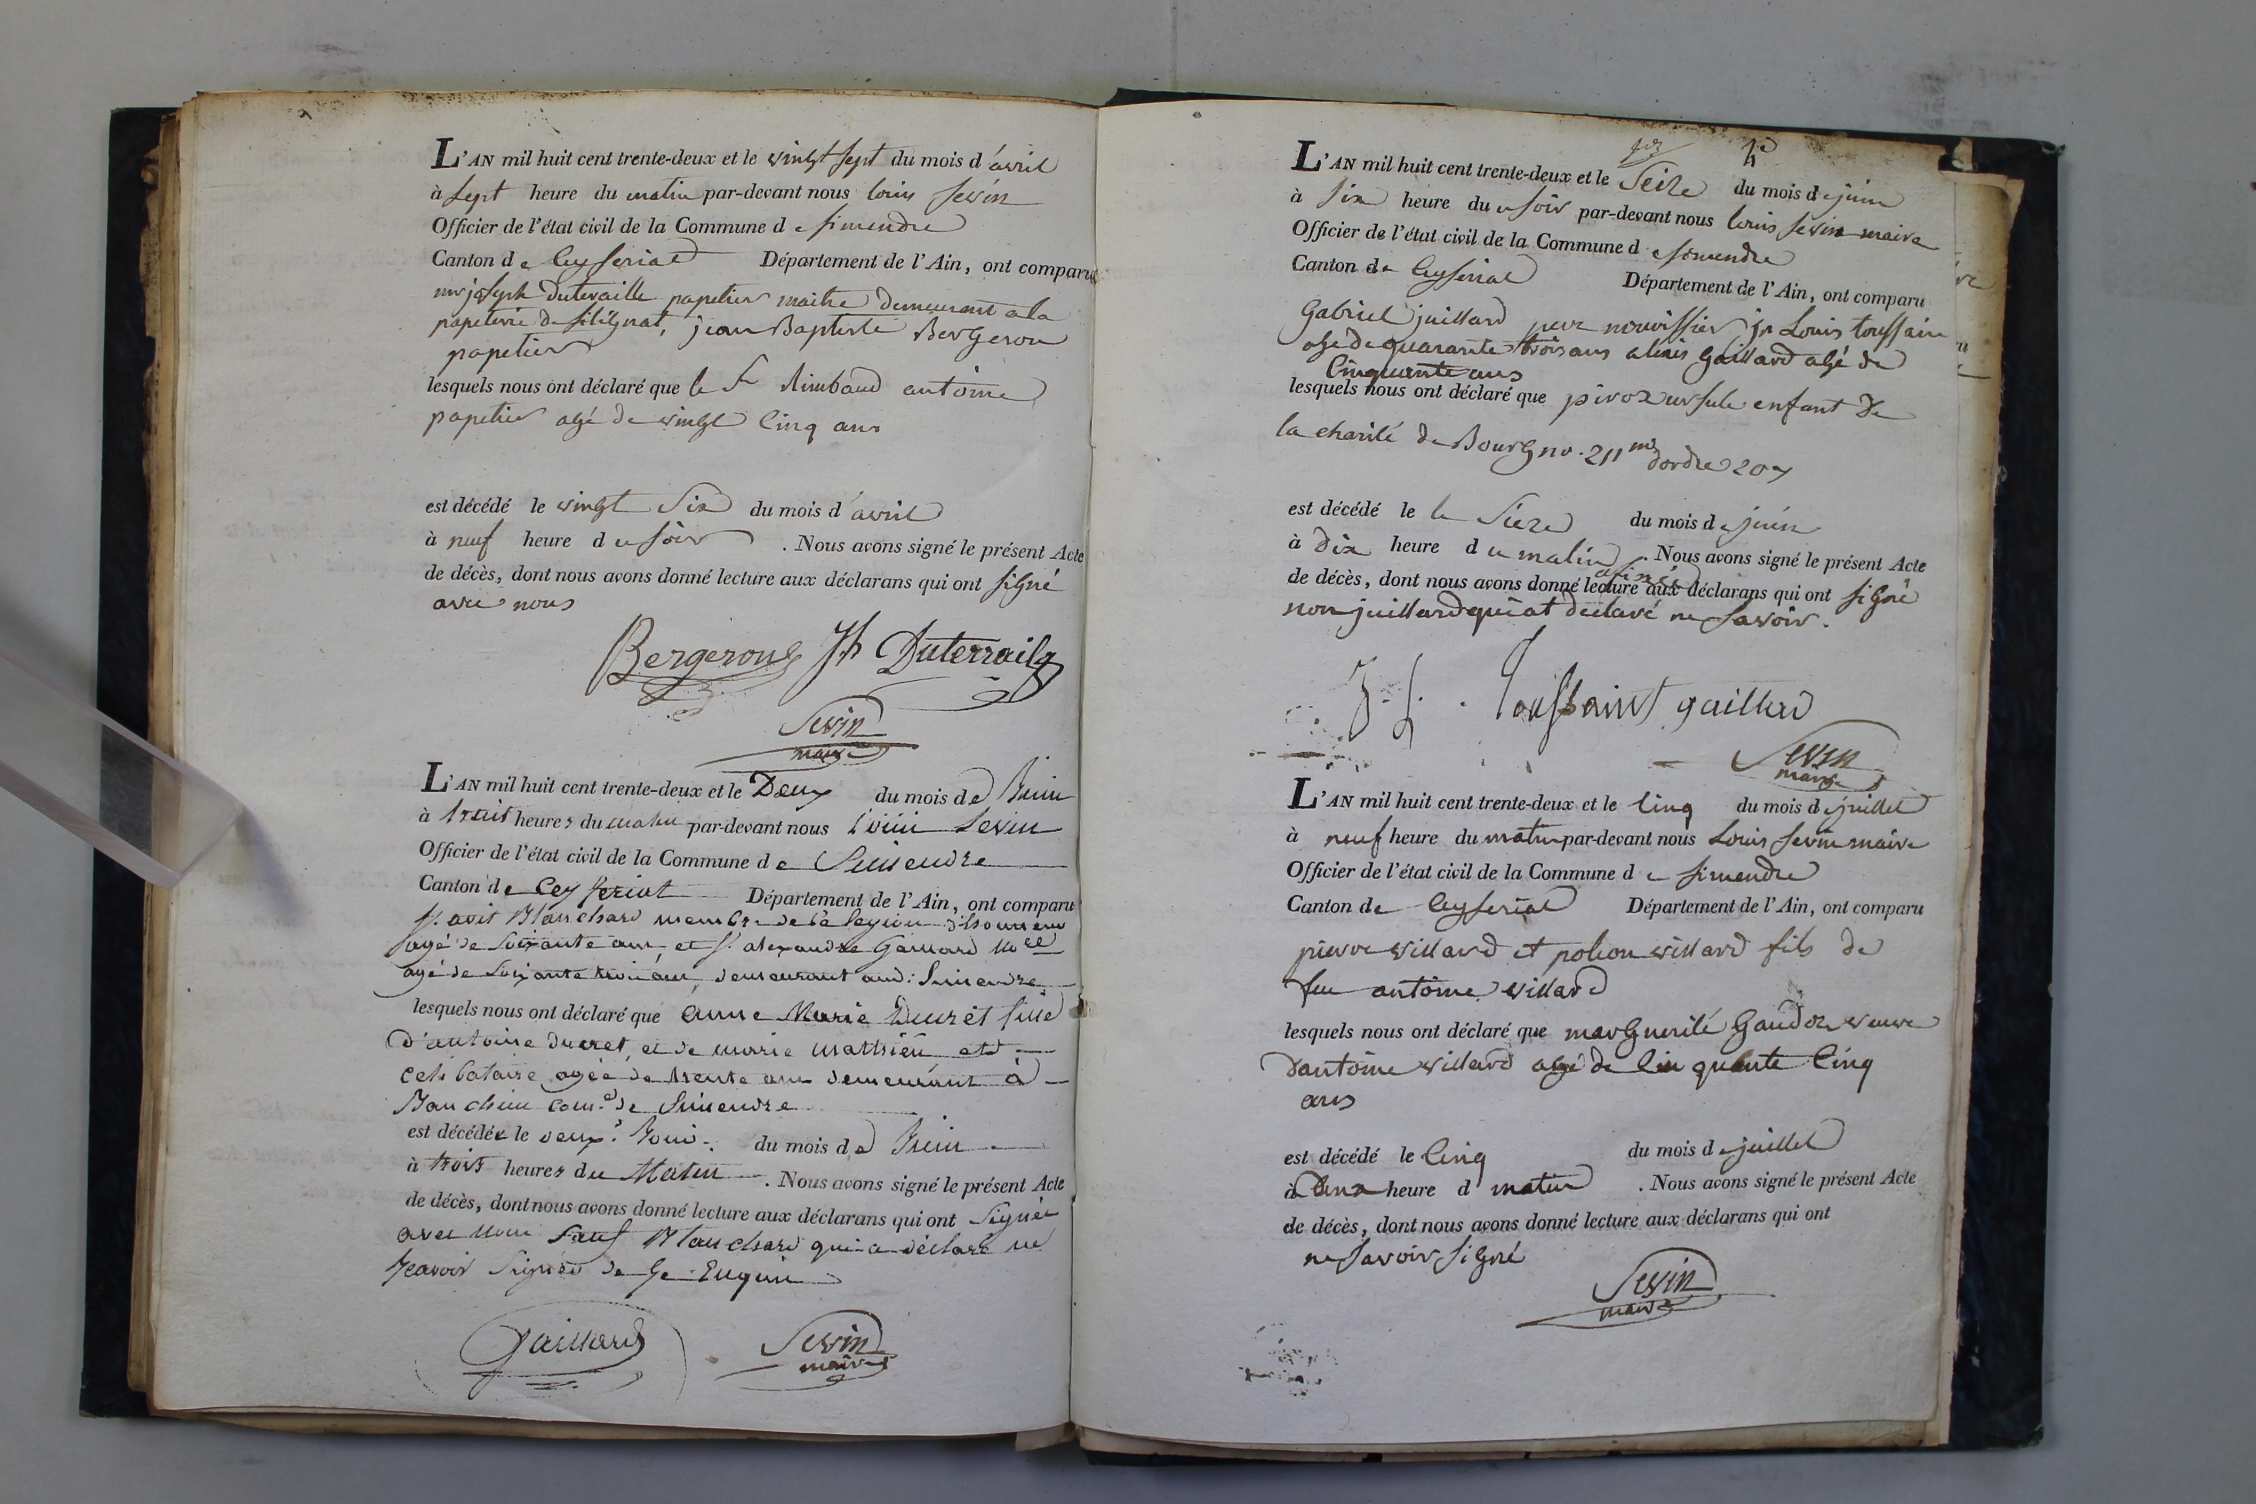 L'AN mil huit cent trente-deux et le vingt sept du mois d'avril
à sept heure du matin par-devant nous louis sevin
Officier de l'état civil de la Commune de simendre
Canton de Ceyseriat Département de l'Ain, ont comparu
mr joseph Duteraille papetier maitre Demeurant a la
papeterie de jean Baptiste Bergeron
papetier
lesquels nous ont déclaré que le Sr Rimbaud antoine
papetier agé de vingt Cinq ans
est décédé le vingt Six du mois d'avril
à neuf heure du soir. Nous avons signé le présent Acte
de décès, dont nous avons donné lecture aux déclarans qui ont signé
avec nous
Bergeron Jh Duterrail
Sevin
maire
L'AN mil huit cent trente-deux et le Deux du mois de Juin
à huit heures du matin par-devant nous Louis Sevin
Officier de l'état civil de la Commune de Simendre
Canton de Ceyseriat Département de l'Ain, ont comparu
Blanchard membre de la legion d'honneur
agé de soixante ans, et Sr alexandre Gaillard
agé de soixante trois ans, demeurant aud: Simendre
lesquels nous ont déclaré que anne Marie Ducret fille
d'antoine ducret, et de marie mathieu
celibataire agée de trente ans demeurant à
de Simendre
est décédée le deux du mois de Juin
à trois heures du Matin. Nous avons signé le présent Acte
de décès, dont nous avons donné lecture aux déclarans qui ont signés
avec nous sauf Blanchard qui a déclaré ne
scavoir signer de ce Enquis
Gaillard Sevin
maire
4e
L'AN mil huit cent trente-deux et le Seize du mois de juin
à six heure du soir par-devant nous louis sevin maire
Officier de l'état civil de la Commune de simendre
Canton de Ceyseriat Département de l'Ain, ont comparu
Gabriel juillard pere nourissier jn Louis toussain
age de quarante trois ans gaillard agé de
Cinquante ans
lesquels nous ont déclaré que ursule enfant de
la charité de Bourg no. 211 me d'ordre 207
est décédé le le Sieze du mois de juin
à Dix heure du matin. Nous avons signé le présent Acte
de décès, dont nous avons donné lecture aux déclarans qui ont signé
non juillard qui at déclaré ne savoir.
J. L. Toussaint gaillard
Sevin
maire
L'AN mil huit cent trente-deux et le Cinq du mois de juillet
à neuf heure du matin par-devant nous Louis sevin maire
Officier de l'état civil de la Commune de simendre
Canton de Ceyseriat Département de l'Ain, ont comparu
pierre villard et villard fils de
feu antoine villard
lesquels nous ont déclaré que marguerite veuve
Dantoine villard agé de Cinquante Cinq
ans
est décédé le Cinq du mois de juillet
à heure d matin. Nous avons signé le présent Acte
de décès, dont nous avons donné lecture aux déclarans qui ont
ne savoir signé
Sevin
maire